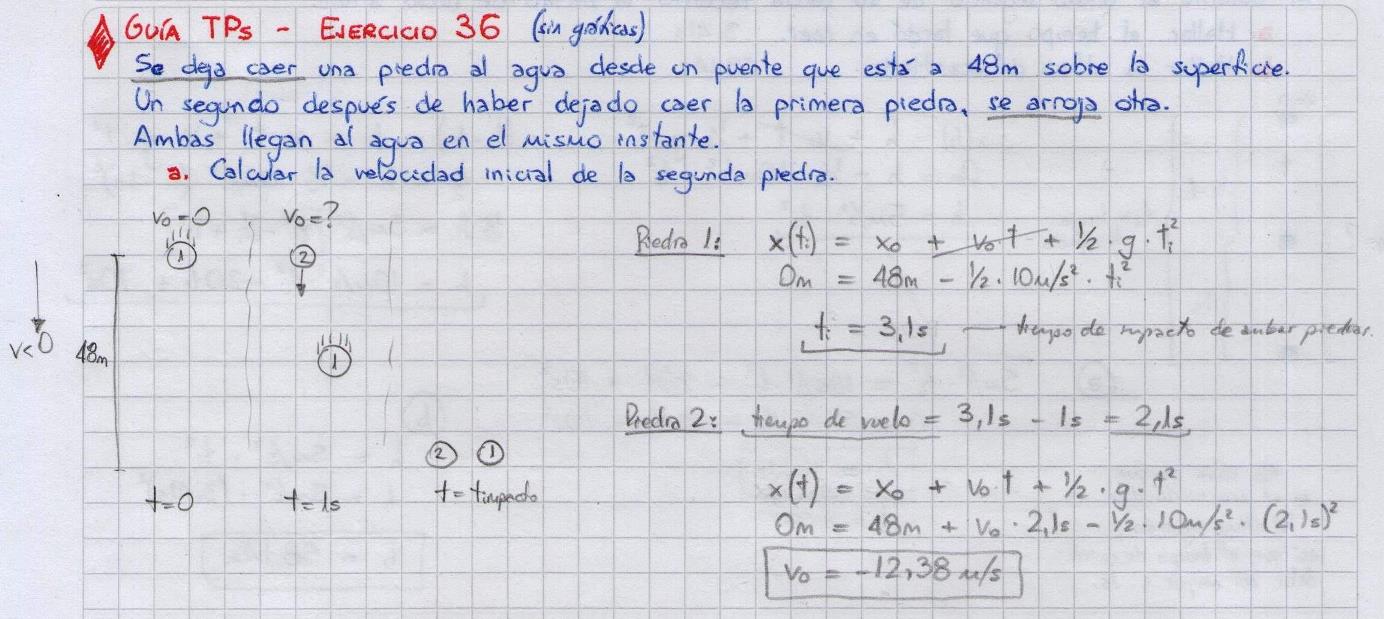 GUÍA TPs - EJERCICIO 36 (sin gráficas)
Se deja caer una piedra al agua desde un puente que está a 48m sobre la superficie.
Un segundo después de haber dejado caer la primera piedra, se arroja otra.
Ambas llegan al agua en el mismo instante.
a. Calcular la velocidad inicial de la segunda piedra.
V₀=0 V₀=?
1 2
V<0 48m
1
2 1
t=0 t=1s t=timpacto
Piedra 1: x(tᵢ) = x₀ + v₀ t + ½ · g · tᵢ²
0m = 48m - ½ · 10m/s² · tᵢ²
tᵢ = 3,1s — tiempo de impacto de ambas piedras.
Piedra 2: tiempo de vuelo = 3,1s - 1s = 2,1s
x(t) = x₀ + v₀·t + ½ · g · t²
0m = 48m + v₀ · 2,1s - ½ · 10m/s² · (2,1s)²
v₀ = -12,38 m/s